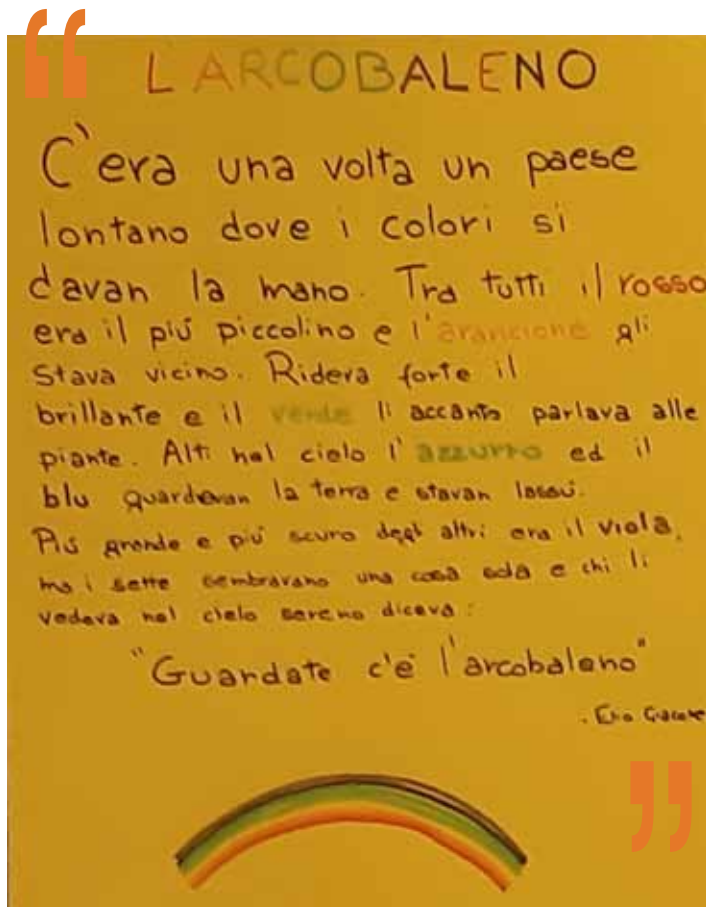 L'ARCOBALENO
C'era una volta un paese
lontano dove i colori si
davan la mano. Tra tutti il rosso
era il più piccolino e l'arancione gli
stava vicino. Rideva forte il
brillante e il verde li accanto parlava alle
piante. Alti nel cielo l'azzurro ed il
blu guardavan la terra e stavan lassù.
Più grande e più scuro degli altri era il viola,
ma i sette sembravano una cosa sola e chi li
vedeva nel cielo sereno diceva:
"Guardate c'è l'arcobaleno"